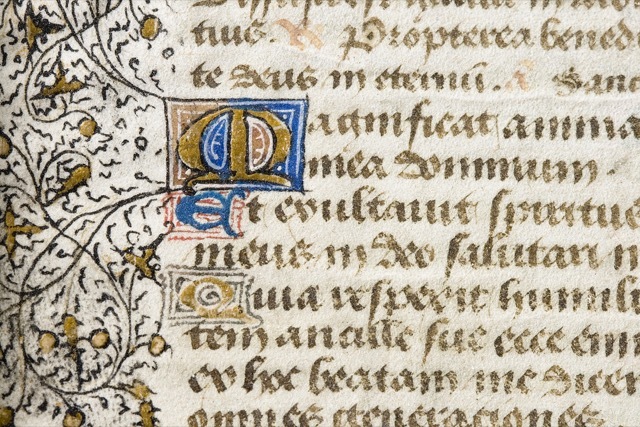 tuus. ℟ Propterea bened
te deus in eternū. a Sanc
Magnificat anima
mea dominum.
Et exultavit spiritus
meus in deo salutari m
Quia respexit humili
tem ancille sue ecce enim
ex hoc beatam me dicen
omnes generaciones